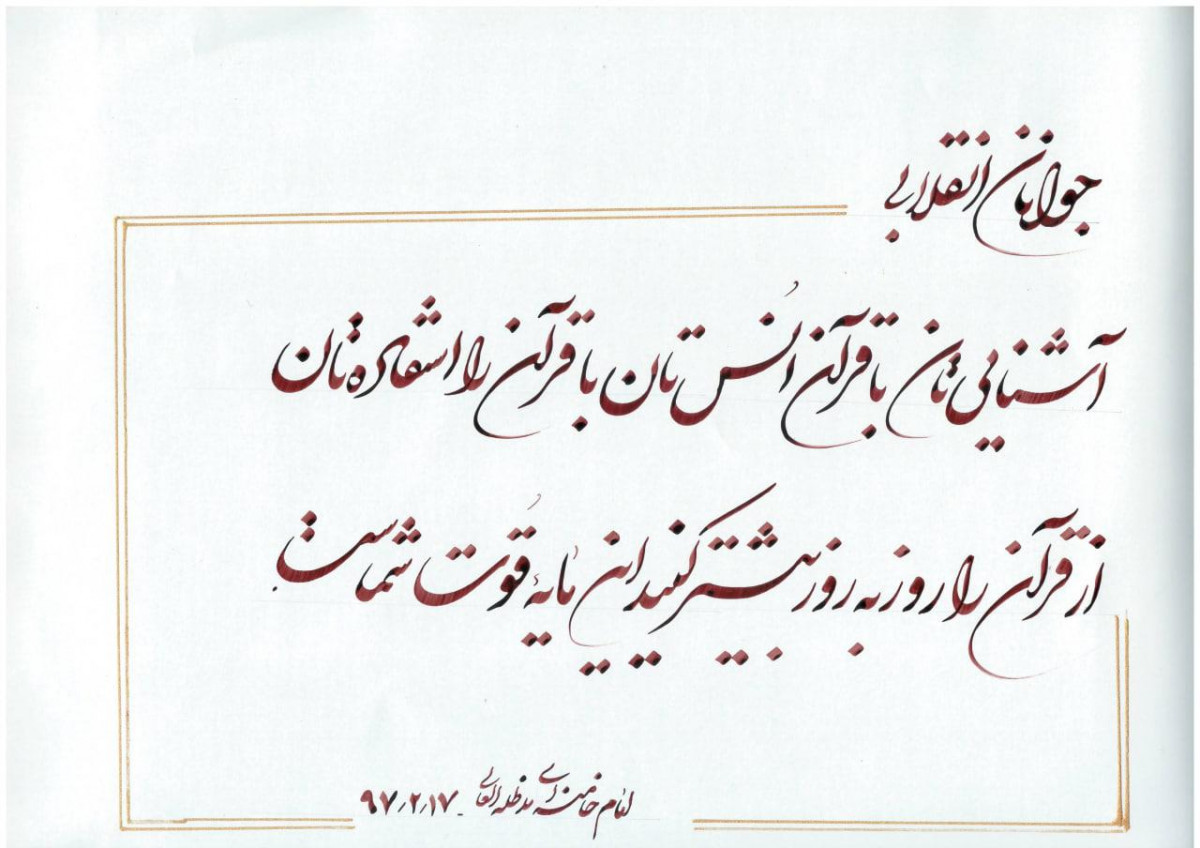 جوانان انقلابی
آشنایی تان با قرآن اُنس تان با قرآن را استفاده تان
از قرآن را روز به روز بیشتر کنید این مایهٔ قوُت شماست
امام خامنه ای مدظله العالی - ۹۷/۲/۱۷